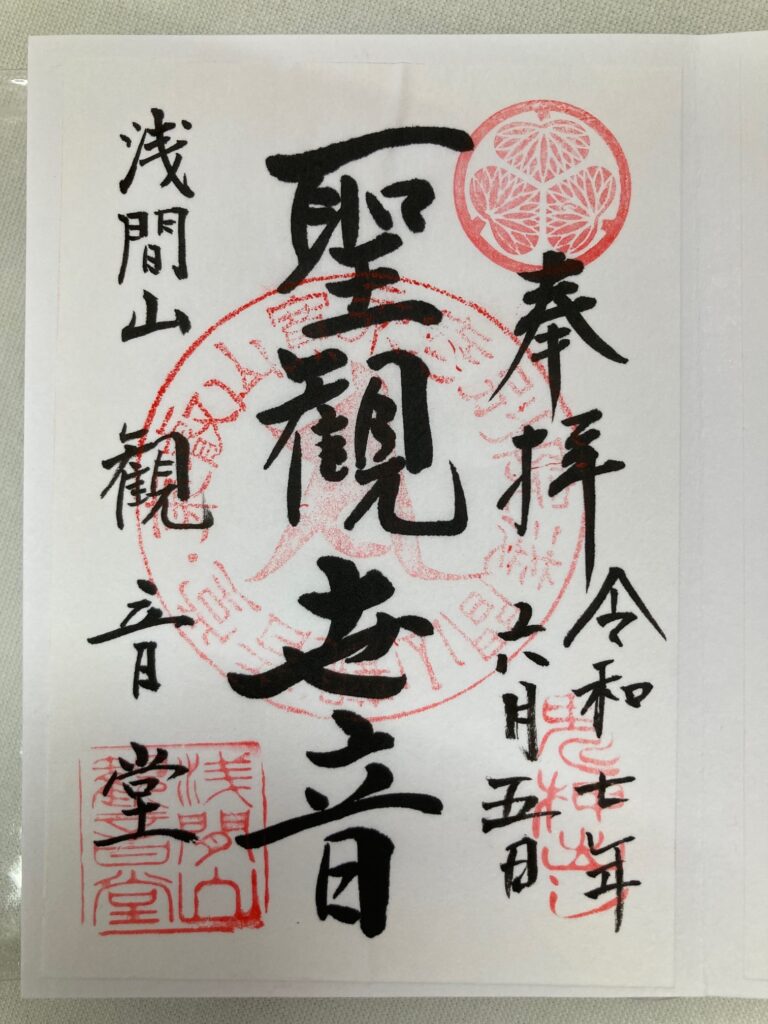 奉拝
令和七年
六月五日
聖観世音
浅間山 観音堂
浅間山
観音堂